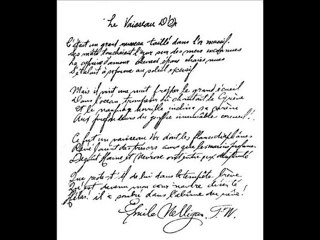 Le Vaisseau D'Or
C'était un grand vaisseau taillé dans l'or massif.
Ses mâts touchaient l'azur sur des mers inconnues
La Cyprine d'amour cheveux épars, chairs nues
S'étalait à sa proue au soleil excessif
Mais il vint une nuit frapper le grand écueil
Dans l'océan trompeur où chantait la Sirène
Et le naufrage horrible inclina sa carène
Aux profondeurs du gouffre immuable cercueil!!
Ce fut un vaisseau d'or dont les flancs diaphanes
des trésors que les marins profanes
Dégoût Haine et Névrose ont entre eux disputé
Que reste-t-il de lui dans la tempête brève
Qu'est devenu mon cœur navire déserté
Hélas! il a sombré dans l'abîme du rêve!
Emile Nelligan.